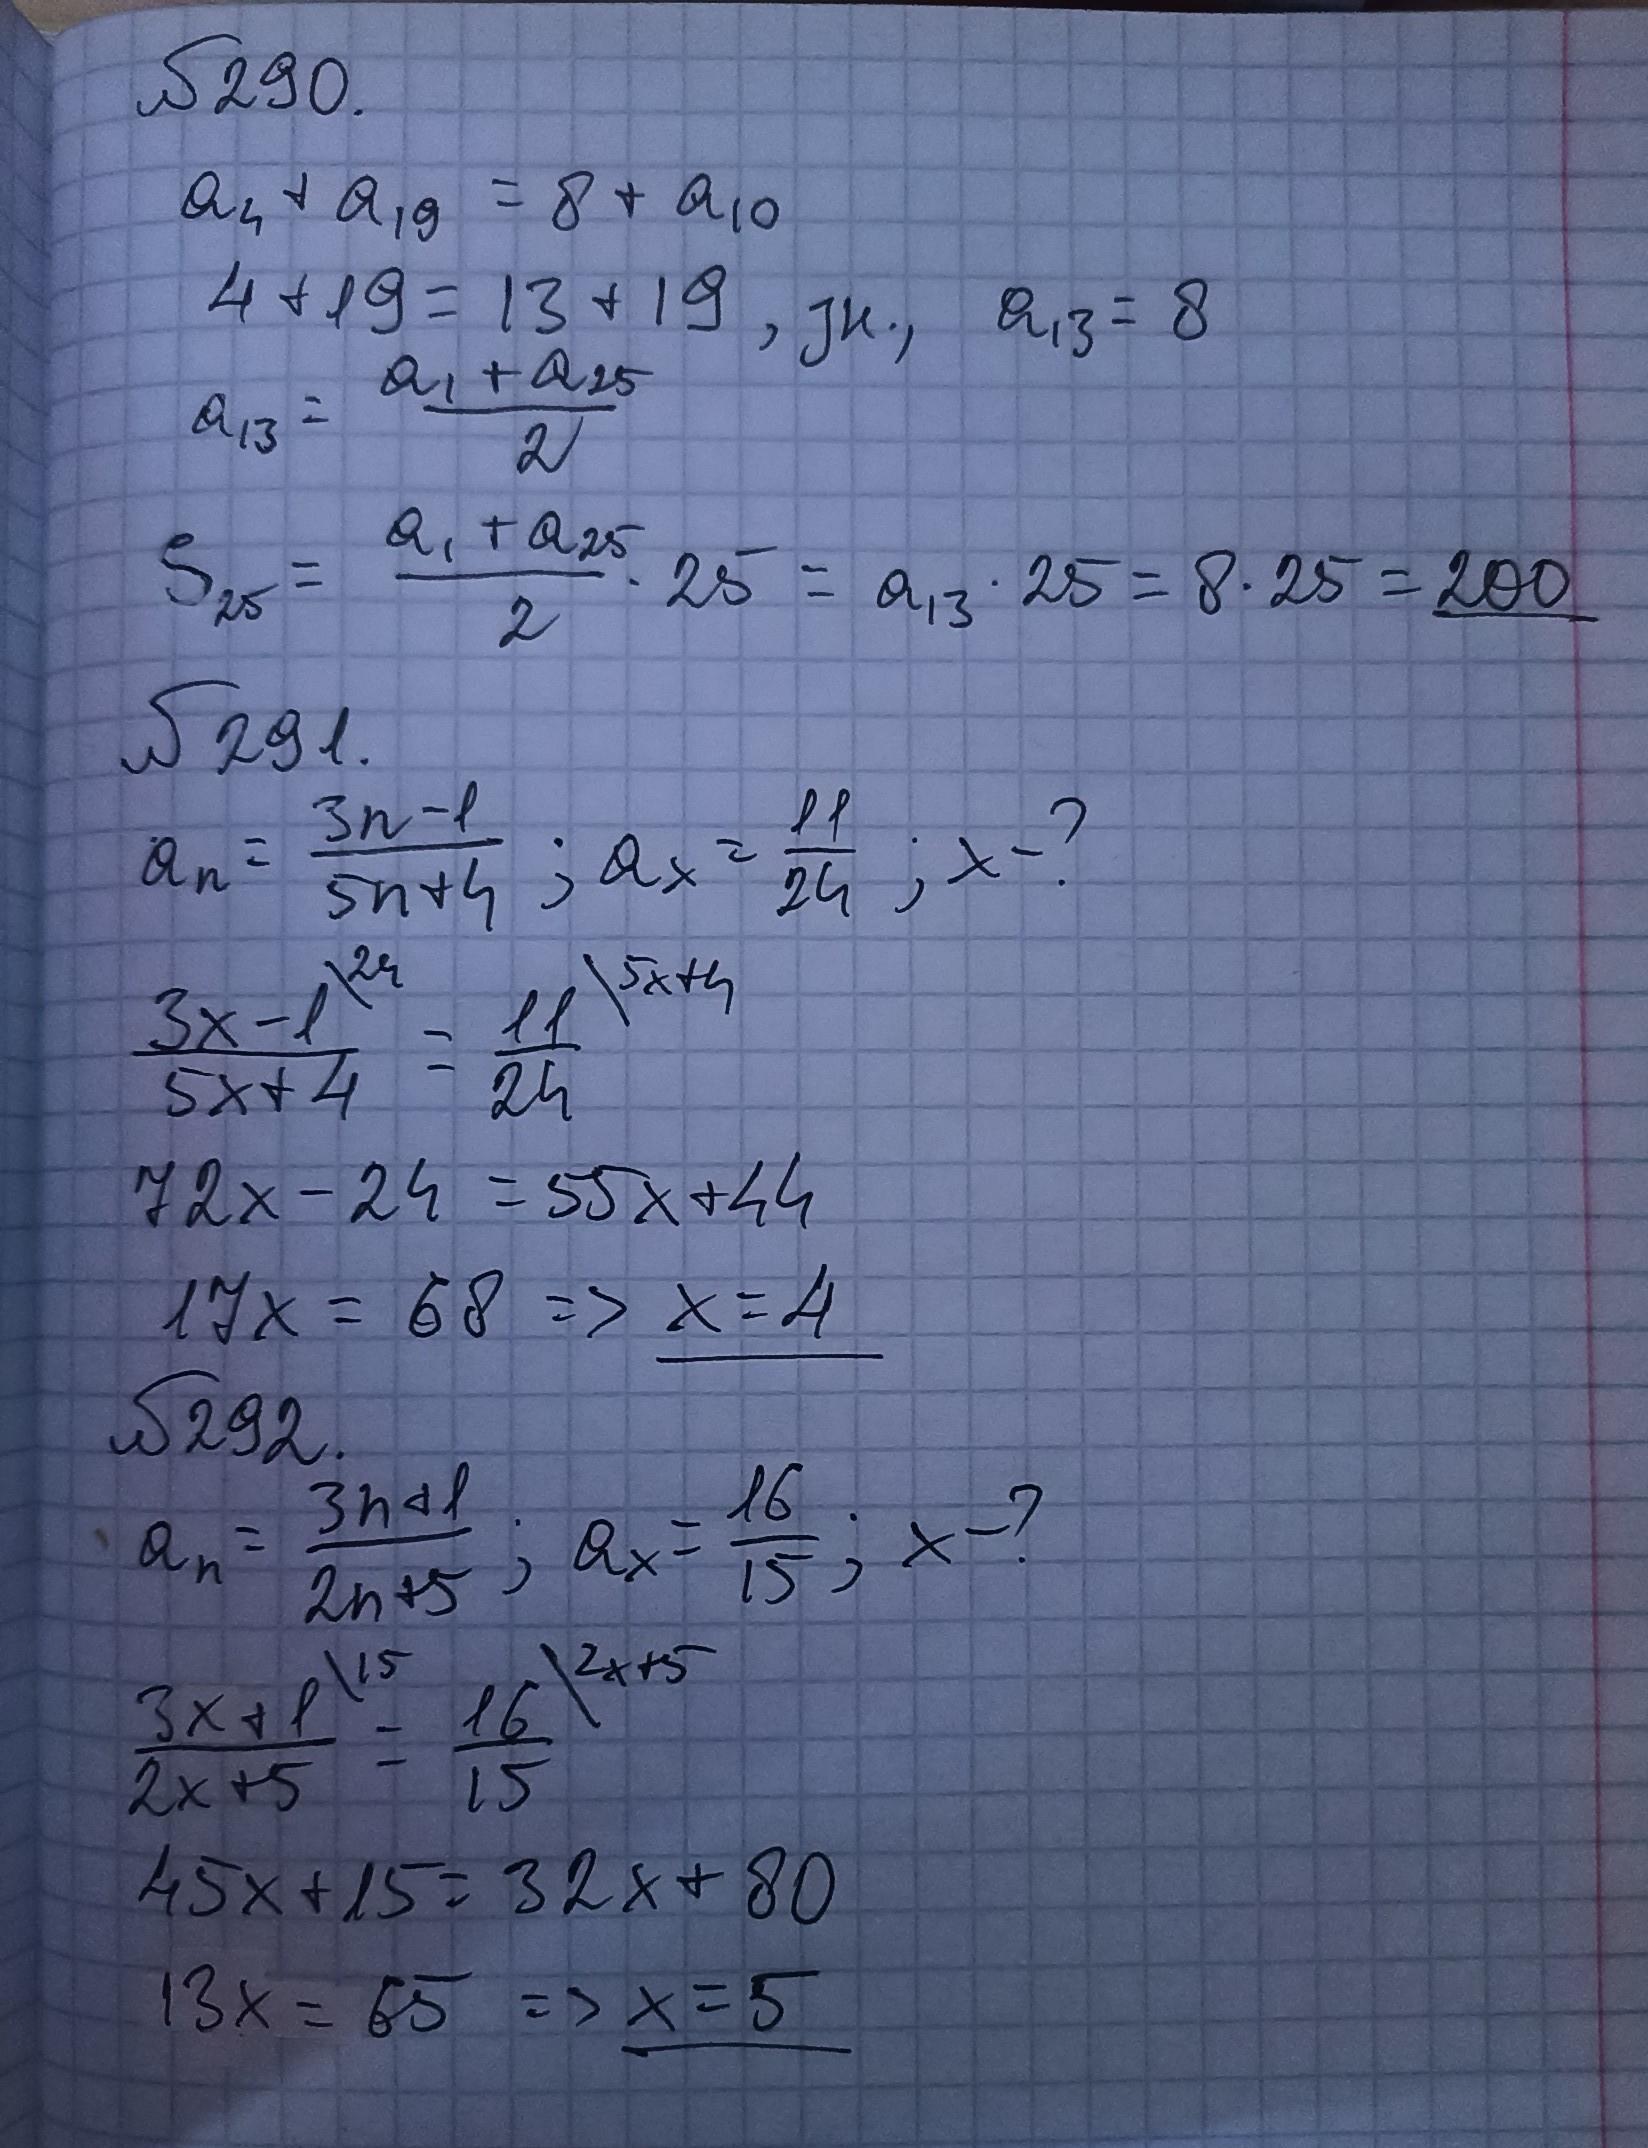 №290.
a₄ + a₁₉ = 8 + a₁₀
4 + 19 = 13 + 19, зн., a₁₃ = 8
a₁₃ = (a₁ + a₂₅)/2
S₂₅ = (a₁ + a₂₅)/2 · 25 = a₁₃ · 25 = 8 · 25 = 200
№291.
aₙ = (3n-1)/(5n+4) ; aₓ = 11/24 ; x-?
(3x-1)/(5x+4) \24 = 11/24 \5x+4
72x - 24 = 55x + 44
17x = 68 => x = 4
№292.
aₙ = (3n+1)/(2n+5) ; aₓ = 16/15 ; x-?
(3x+1)/(2x+5) \15 = 16/15 \2x+5
45x + 15 = 32x + 80
13x = 65 => x = 5